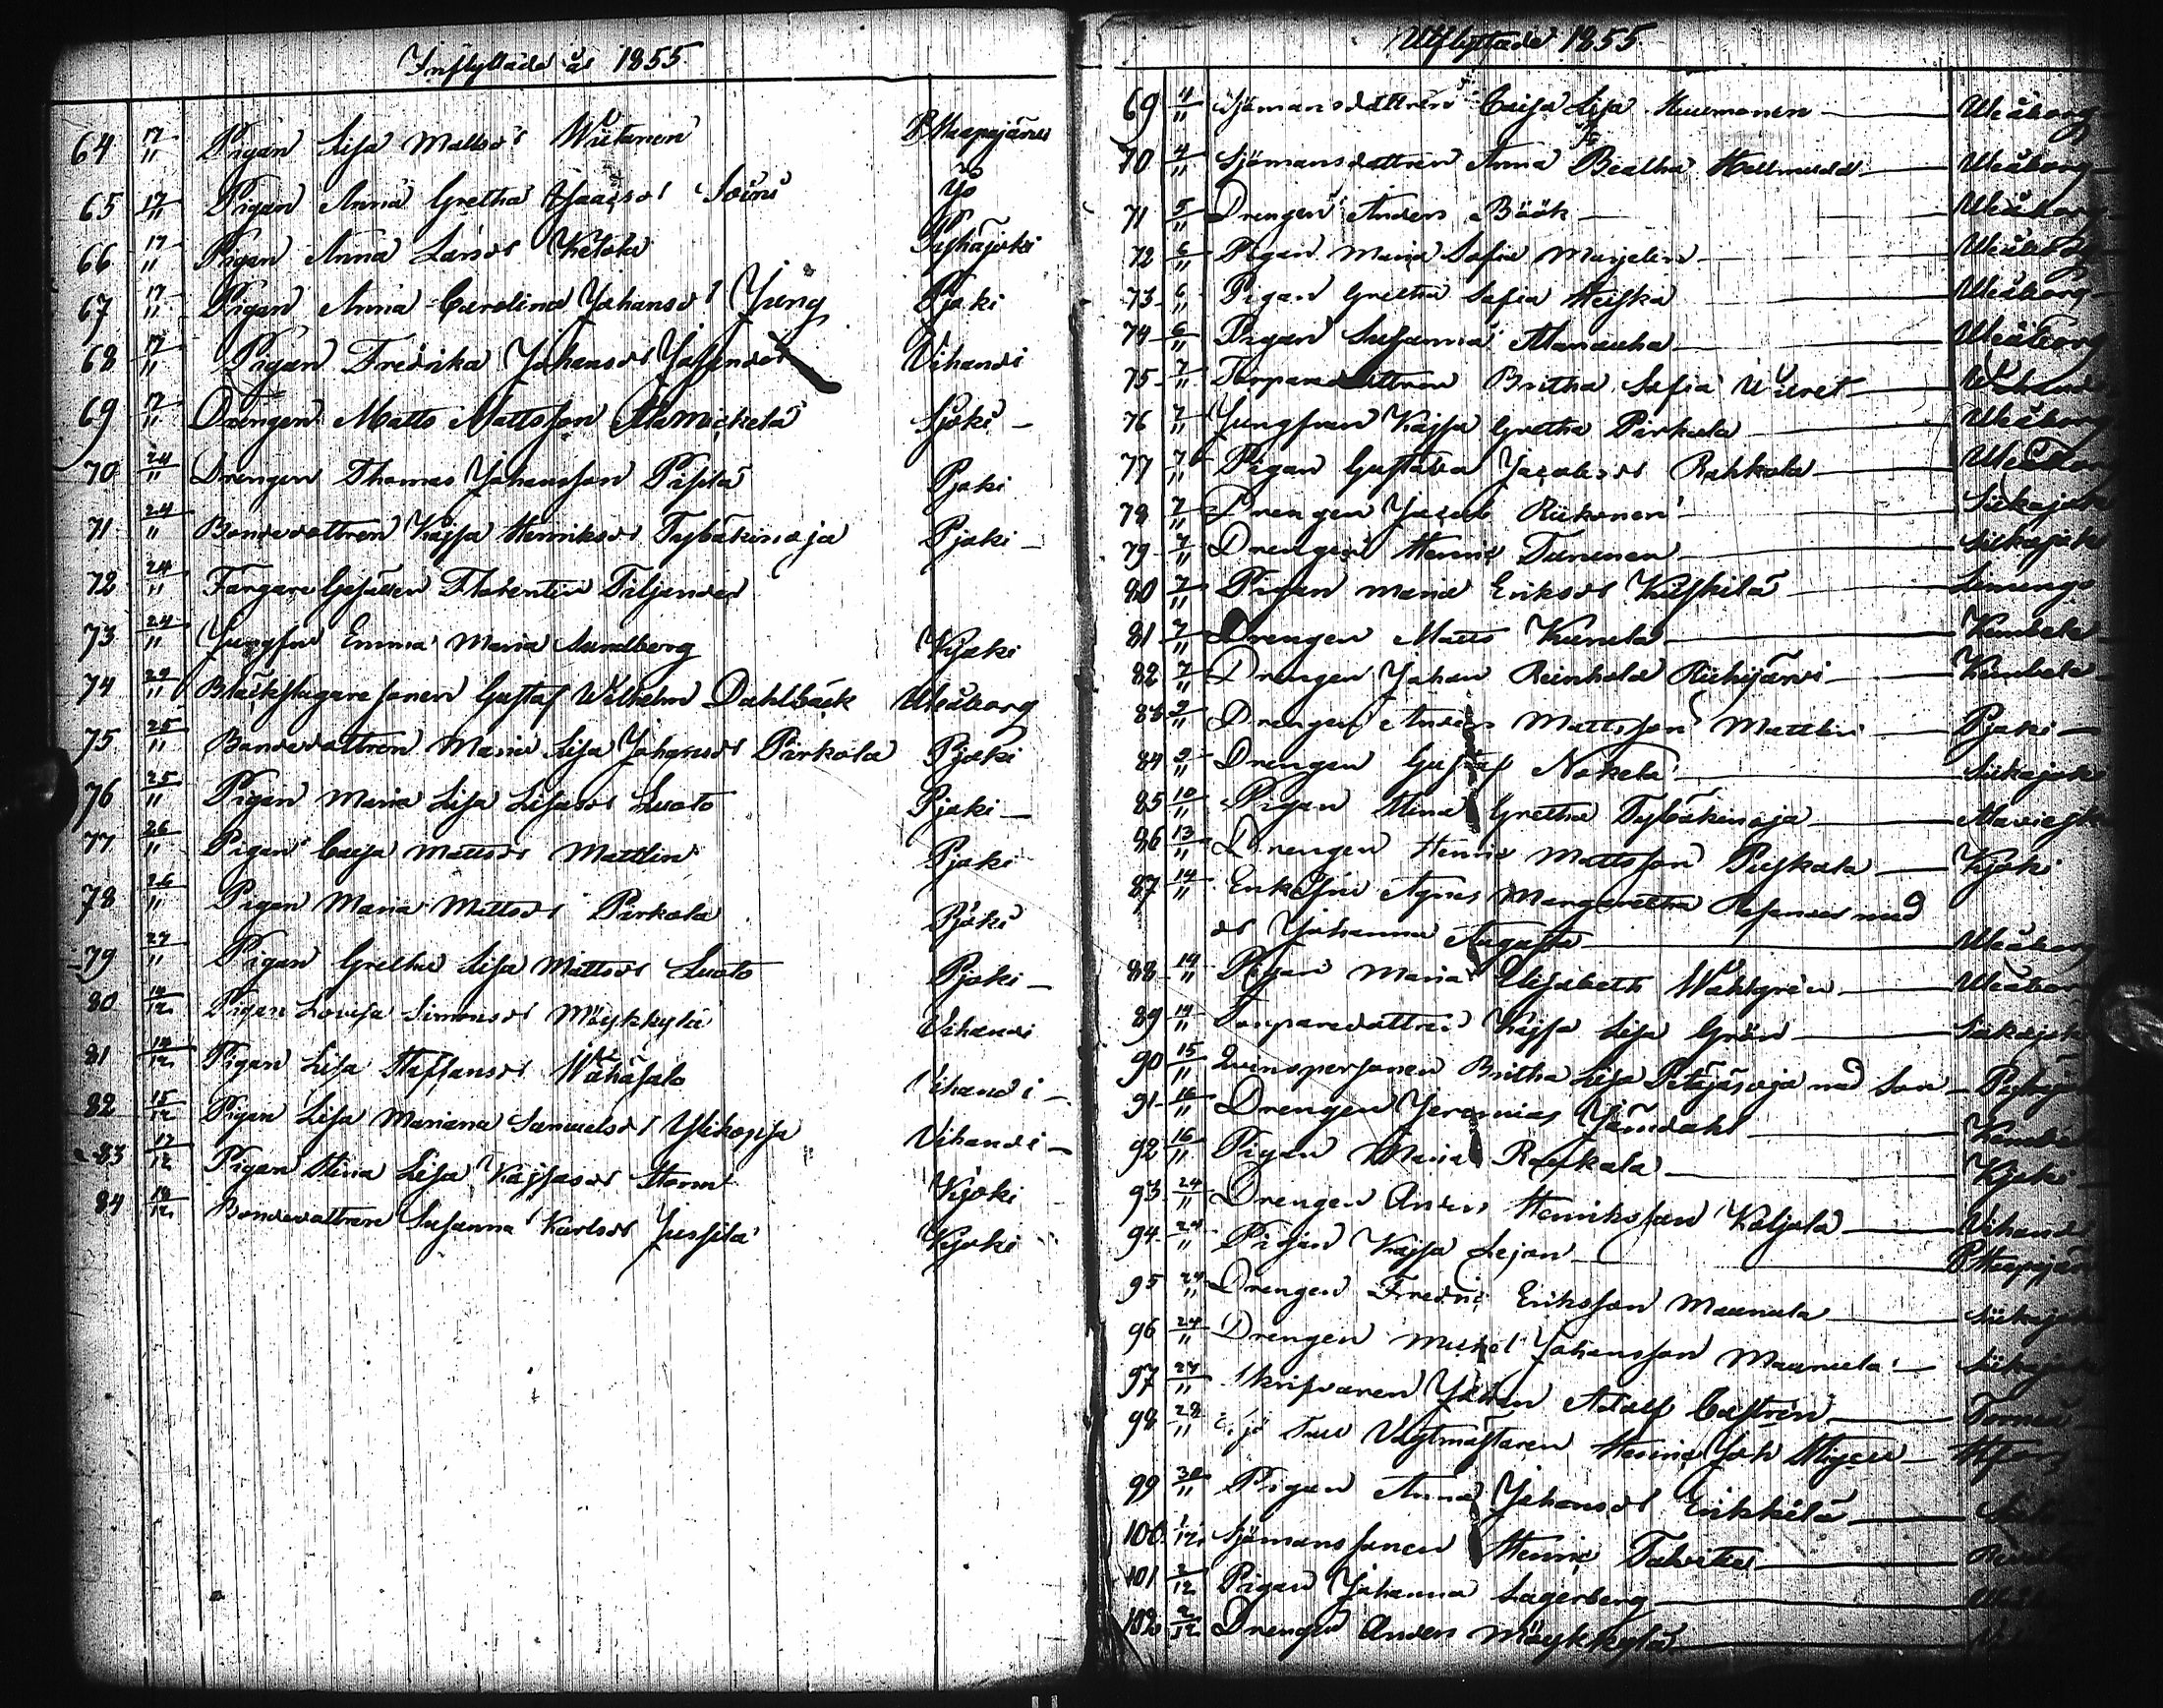 Inflyttade år 1855
64 17/11 Pigan Lisa Mattsdr Wiitanen P.Haapajärvi
65 17/11 Pigan Anna Gretha Isaacsdr Soini Ijo
66 17/11 Pigan Anna Larsdr Ketola Pyhäjoki
67 17/11 Pigan Anna Carolina Johansdr Jung Pjoki
68 17/11 Pigan Fredrika Johansdr Vihandi
69 17/11 Drengen Matts Mattsson Alamickelä Sjoki
70 24/11 Drengen Thomas Johansson Pasila Pjoki
71 24/11 Bondedottren Kajsa Henriksdr Tybäkinoja Pjoki
72 24/11 Färgare Gesällen Florentin Tiljander
73 24/11 Jungfru Emma Maria Sundberg Kjoki
74 24/11 Bläckslagare sonen Gustaf Wilhelm Dahlbäck Uleåborg
75 25/11 Bondedottren Maria Lisa Johansdr Pirkola Pjoki
76 25/11 Pigan Maria Lisa Lisasdr Luoto Pjoki
77 26/11 Pigan Caisa Mattsdr Mattlin Pjoki
78 26/11 Pigan Maria Mattsdr Pirkola Pjoki
79 27/11 Pigan Gretha Lisa Mattsdr Luoto Pjoki
80 14/12 Pigan Lovisa Simonsdr Möykkylä Vihandi
81 14/12 Pigan Lisa Staffansdr Wähäsalo Vihandi
82 15/12 Pigan Lisa Mariana Samuelsdr Ylikoppsa Vihandi
83 17/12 Pigan Stina Lisa Kajsasdr Storm Kjoki
84 18/12 Bondedottren Susanna Karlsdr Jussila Kjoki
Utflyttade 1855
69 4/11 Sjömansdottren Caisa Lisa Uleåborg
70 4/11 Sjömansdottren Anna Beatha Uleåborg
71 5/11 Drengen Anders Böök Uleåborg
72 6/11 Pigan Maria Sofia Marjelin Uleåborg
73 6/11 Pigan Gretha Sofia Heiska Uleåborg
74 6/11 Pigan Susanna Uleåborg
75 7/11 Torparedottren Britha Sofia
76 7/11 Jungfrun Kajsa Gretha Pirkola Uleåborg
77 7/11 Pigan Gustava Jacobsdr Rahkola Uleåborg
78 7/11 Drengen Jacob Riikonen Siikajoki
79 7/11 Drengen Henric Turunen Siikajoki
80 7/11 Pigan Maria Eriksdr Kiiskilä Limingo
81 7/11 Drengen Matts Kunela Kembele
82 7/11 Drengen Johan Reinhold Riihijärvi Kembele
83 9/11 Drengen Anders Mattsson Mattlin Pjoki
84 9/11 Drengen Gustaf Nokela Siikajoki
85 10/11 Pigan Stina Gretha Tybäkinoja
86 13/11 Drengen Henric Mattsson Piiskala Kjoki
87 14/11 Enkefru Agnes Margaretha med
dr Johanna Augusta Uleåborg
88 14/11 Pigan Maria Elisabeth Wahlgren Uleåborg
89 14/11 Torparedottren Kajsa Lisa Grön
90 15/11 Qvinspersonen Britha Lisa Petäjäsoja med Son
91 16/11 Drengen Jeremias
92 16/11 Pigan Maria Raskala Kjoki
93 24/11 Drengen Anders Henriksson Koljola Vihandi
94 24/11 Pigan Kajsa Lejon
95 24/11 Drengen Fredric Eriksson Maunula Siikajoki
96 24/11 Drengen Michel Johansson Maunula Siikajoki
97 27/11 Skrifvaren Johan Adolf Castrén Torneå
98 28/11 Sjö Tull Vagtmästaren Henric Joh
99 30/11 Pigan Anna Johansdr Erikkilä
100 1/12 Sjömanssonen Henric
101 2/12 Pigan Johanna Lagerberg
102 2/12 Drengen Anders Möykkylä